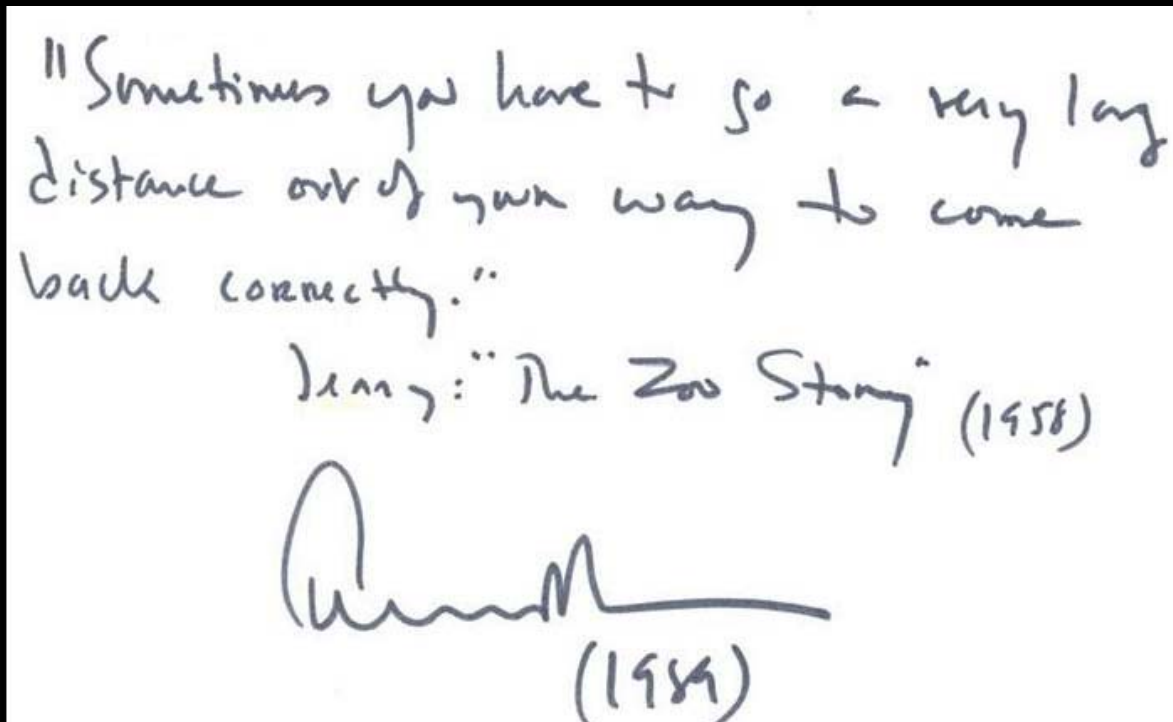 "Sometimes you have to go a very long
distance out of your way to come
back correctly."
Jerry: "The Zoo Story" (1958)
(1989)